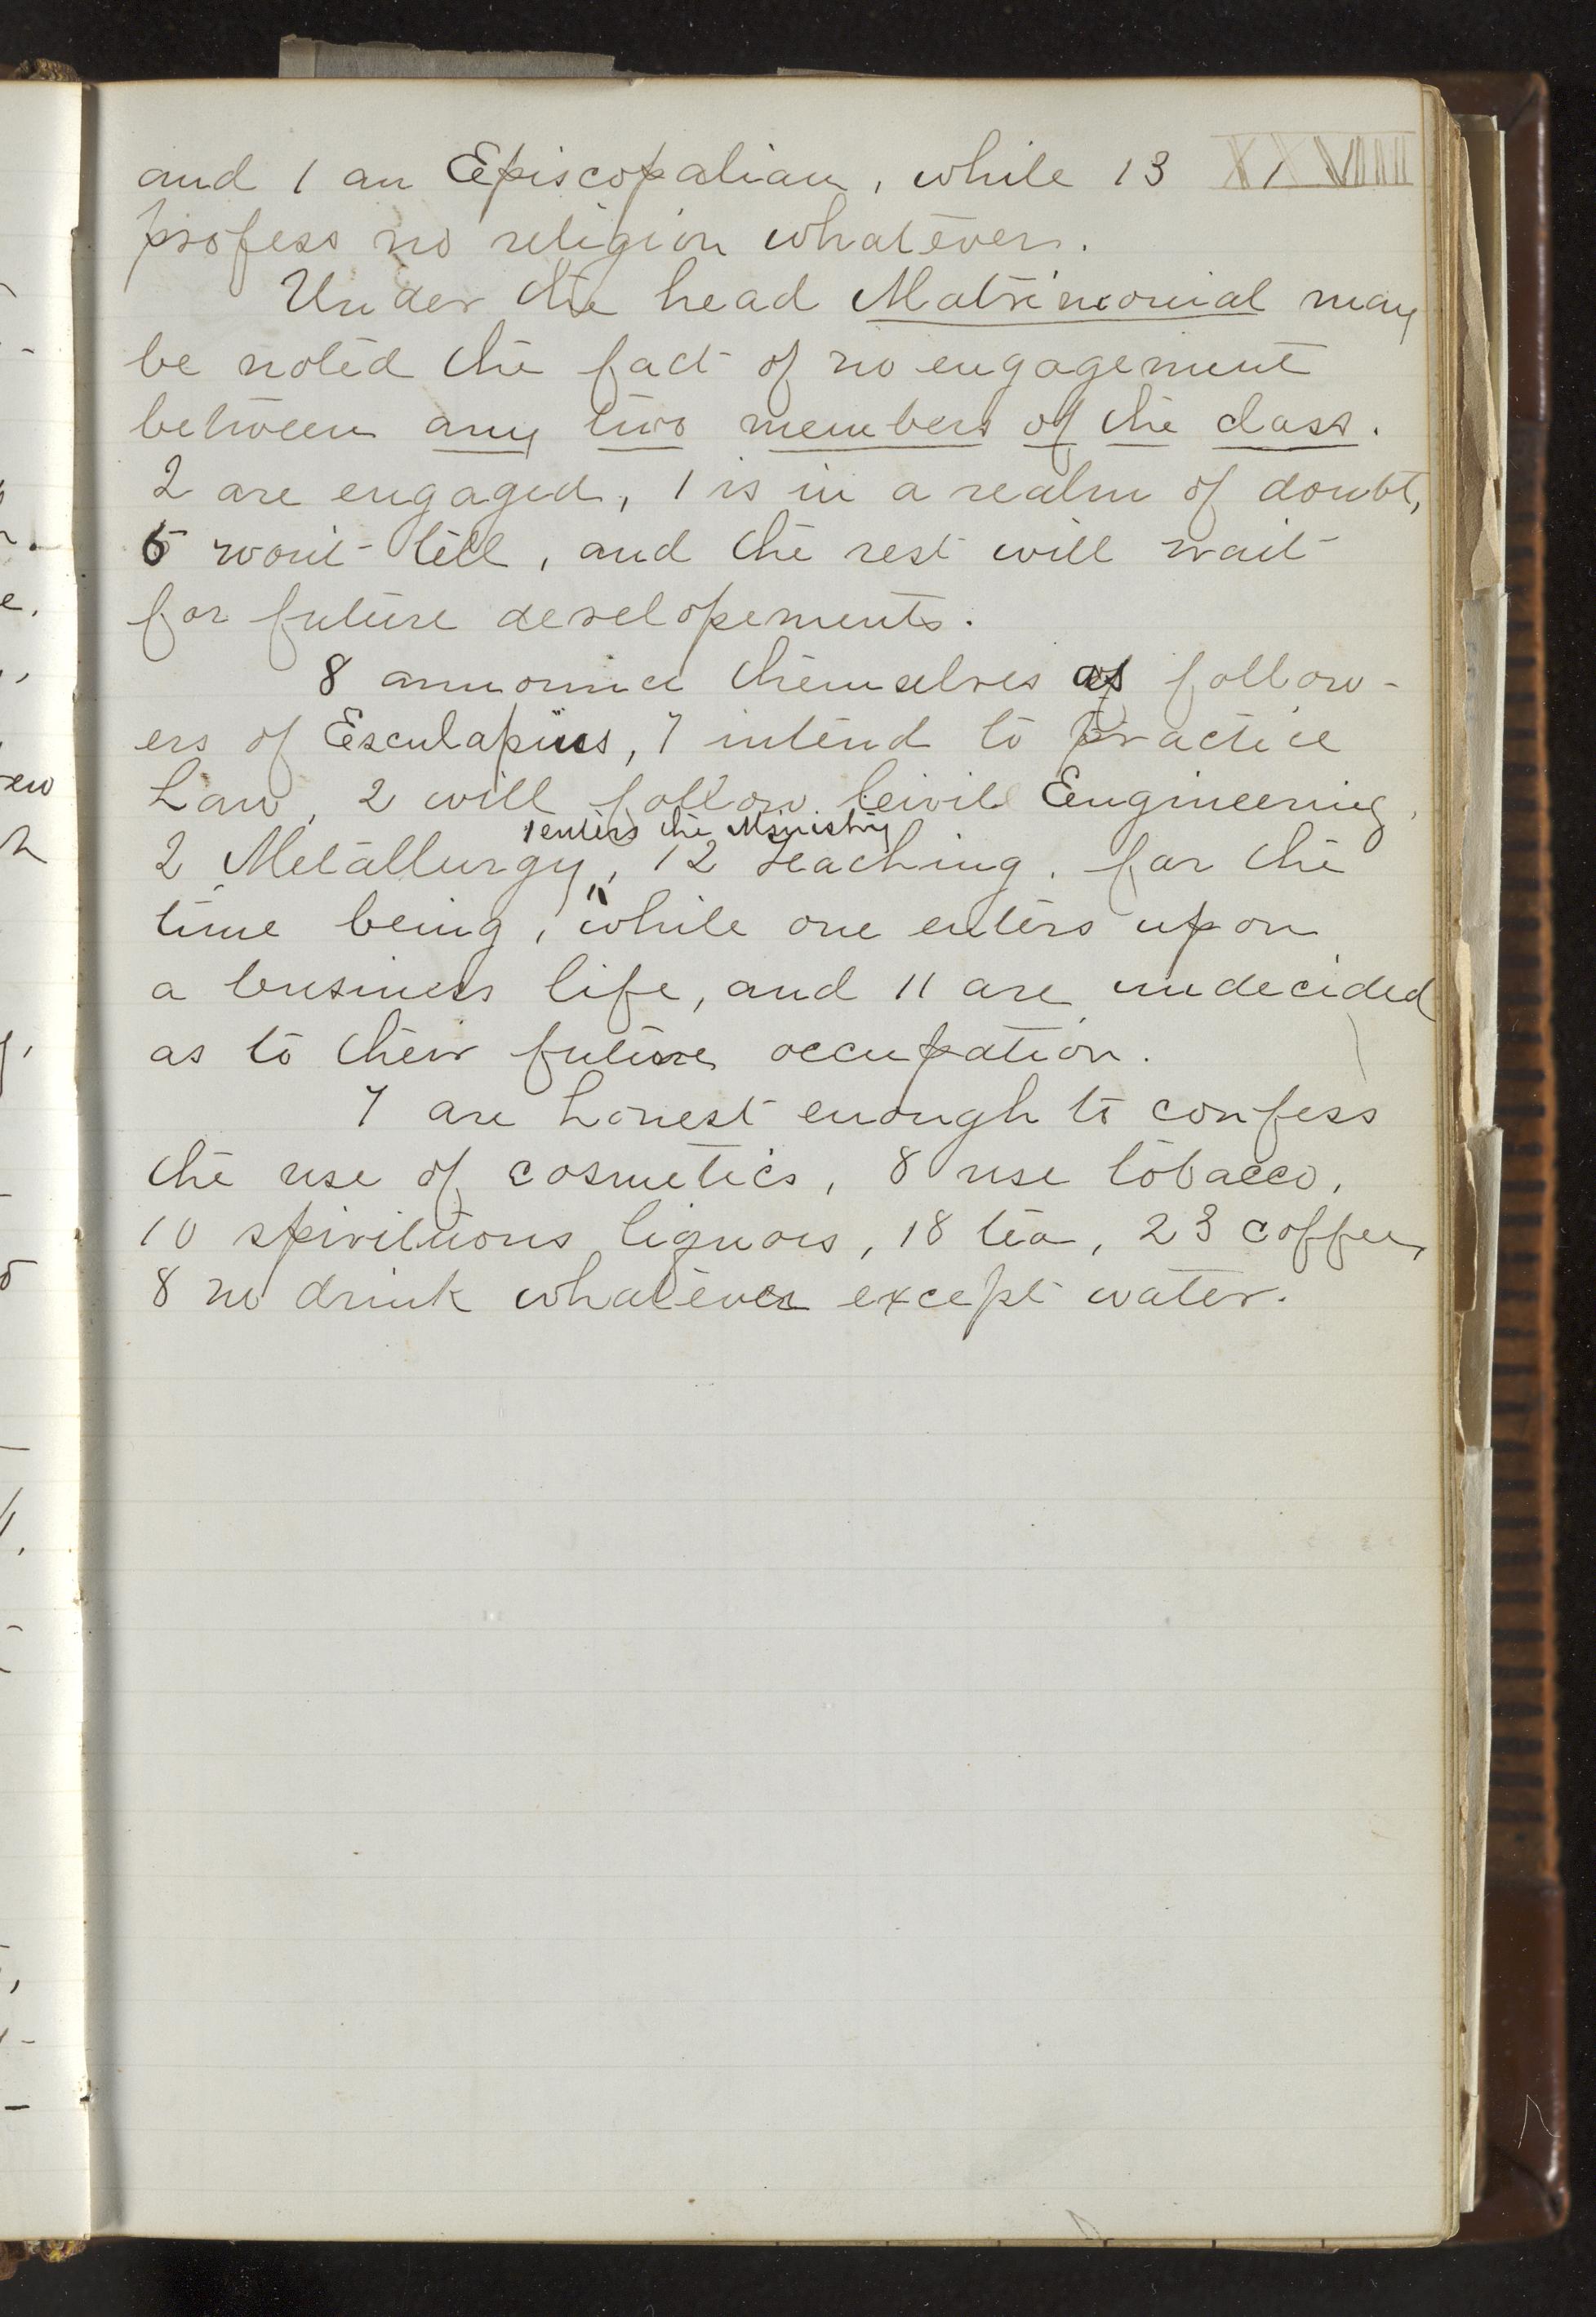 XXVIIII
and 1 an Episcopalian, while 13
profess no religion whatever.
Under the head Matrimonial may
be noted the fact of no engagement
between any two members of the class.
2 are engaged, 1 is in a realm of doubt,
won't tell, and the rest will wait
for future developements.
8 announce themselves as follow-
ers of Esculapius, 7 intend to practice
Law, 2 will follow Civil Engineering,
1 enters the Ministry
2 Metallurgy, 12 teaching, for the
time being, while one enters upon
a business life, and 11 are undecided
as to their future occupation.
7 are honest enough to confess
the use of cosmetics, 8 use tobacco,
10 spirituous liquors, 18 tea, 23 coffee,
8 no drink whatever except water.